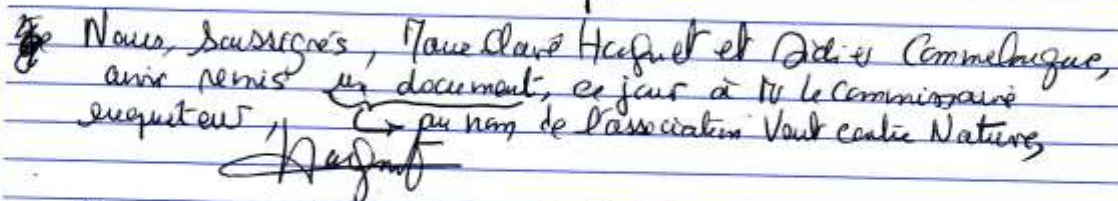 Nous, soussignés, Marie Claire Huguet et Didier Commelongue,
avons remis un document, ce jour à M le Commissaire
enqueteur, au nom de l'association Vent contre Nature,